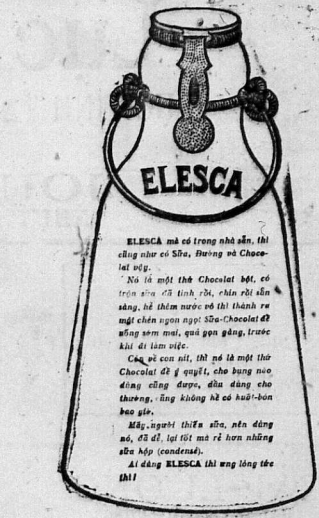 ELESCA
ELESCA mà có trong nhà sẵn, thì
cũng như có Sữa, Đường và Choco-
lat vậy.
Nó là một thứ Chocolat bột, có
trộn sữa đã tinh rồi, chín rồi sẵn
sàng, hễ thêm nước vô thì thành ra
một chén ngon ngọt Sữa-Chocolat để
uống sớm mai, quá gọn gàng, trước
khi đi làm việc.
Còn về con nít, thì nó là một thứ
Chocolat để ý quyết, cho bụng nào
dùng cũng được, dầu dùng cho
thường, cũng không hề có
bao giờ.
Mấy người thiếu sữa, nên dùng
nó, đã dể, lại tốt mà rẻ hơn những
sữa hộp (condensé).
Ai dùng ELESCA thì ưng lòng tức
thì!